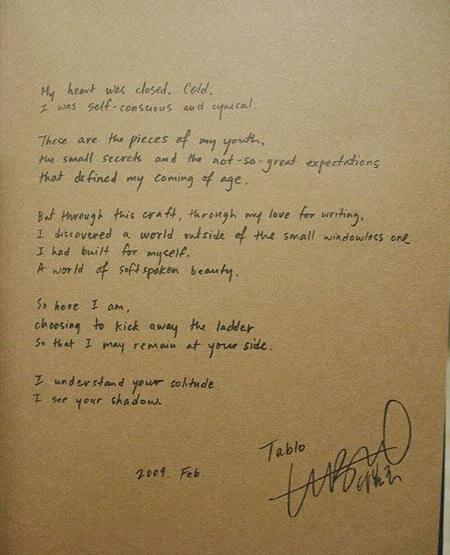 My heart was closed. Cold.
I was self-conscious and cynical.
These are the pieces of my youth,
the small secrets and the not-so-great expectations
that defined my coming of age.
But through this craft, through my love for writing,
I discovered a world outside of the small windowless one
I had built for myself.
A world of softspoken beauty.
So here I am,
choosing to kick away the ladder
so that I may remain at your side.
I understand your solitude
I see your shadow.
Tablo
2009. Feb.